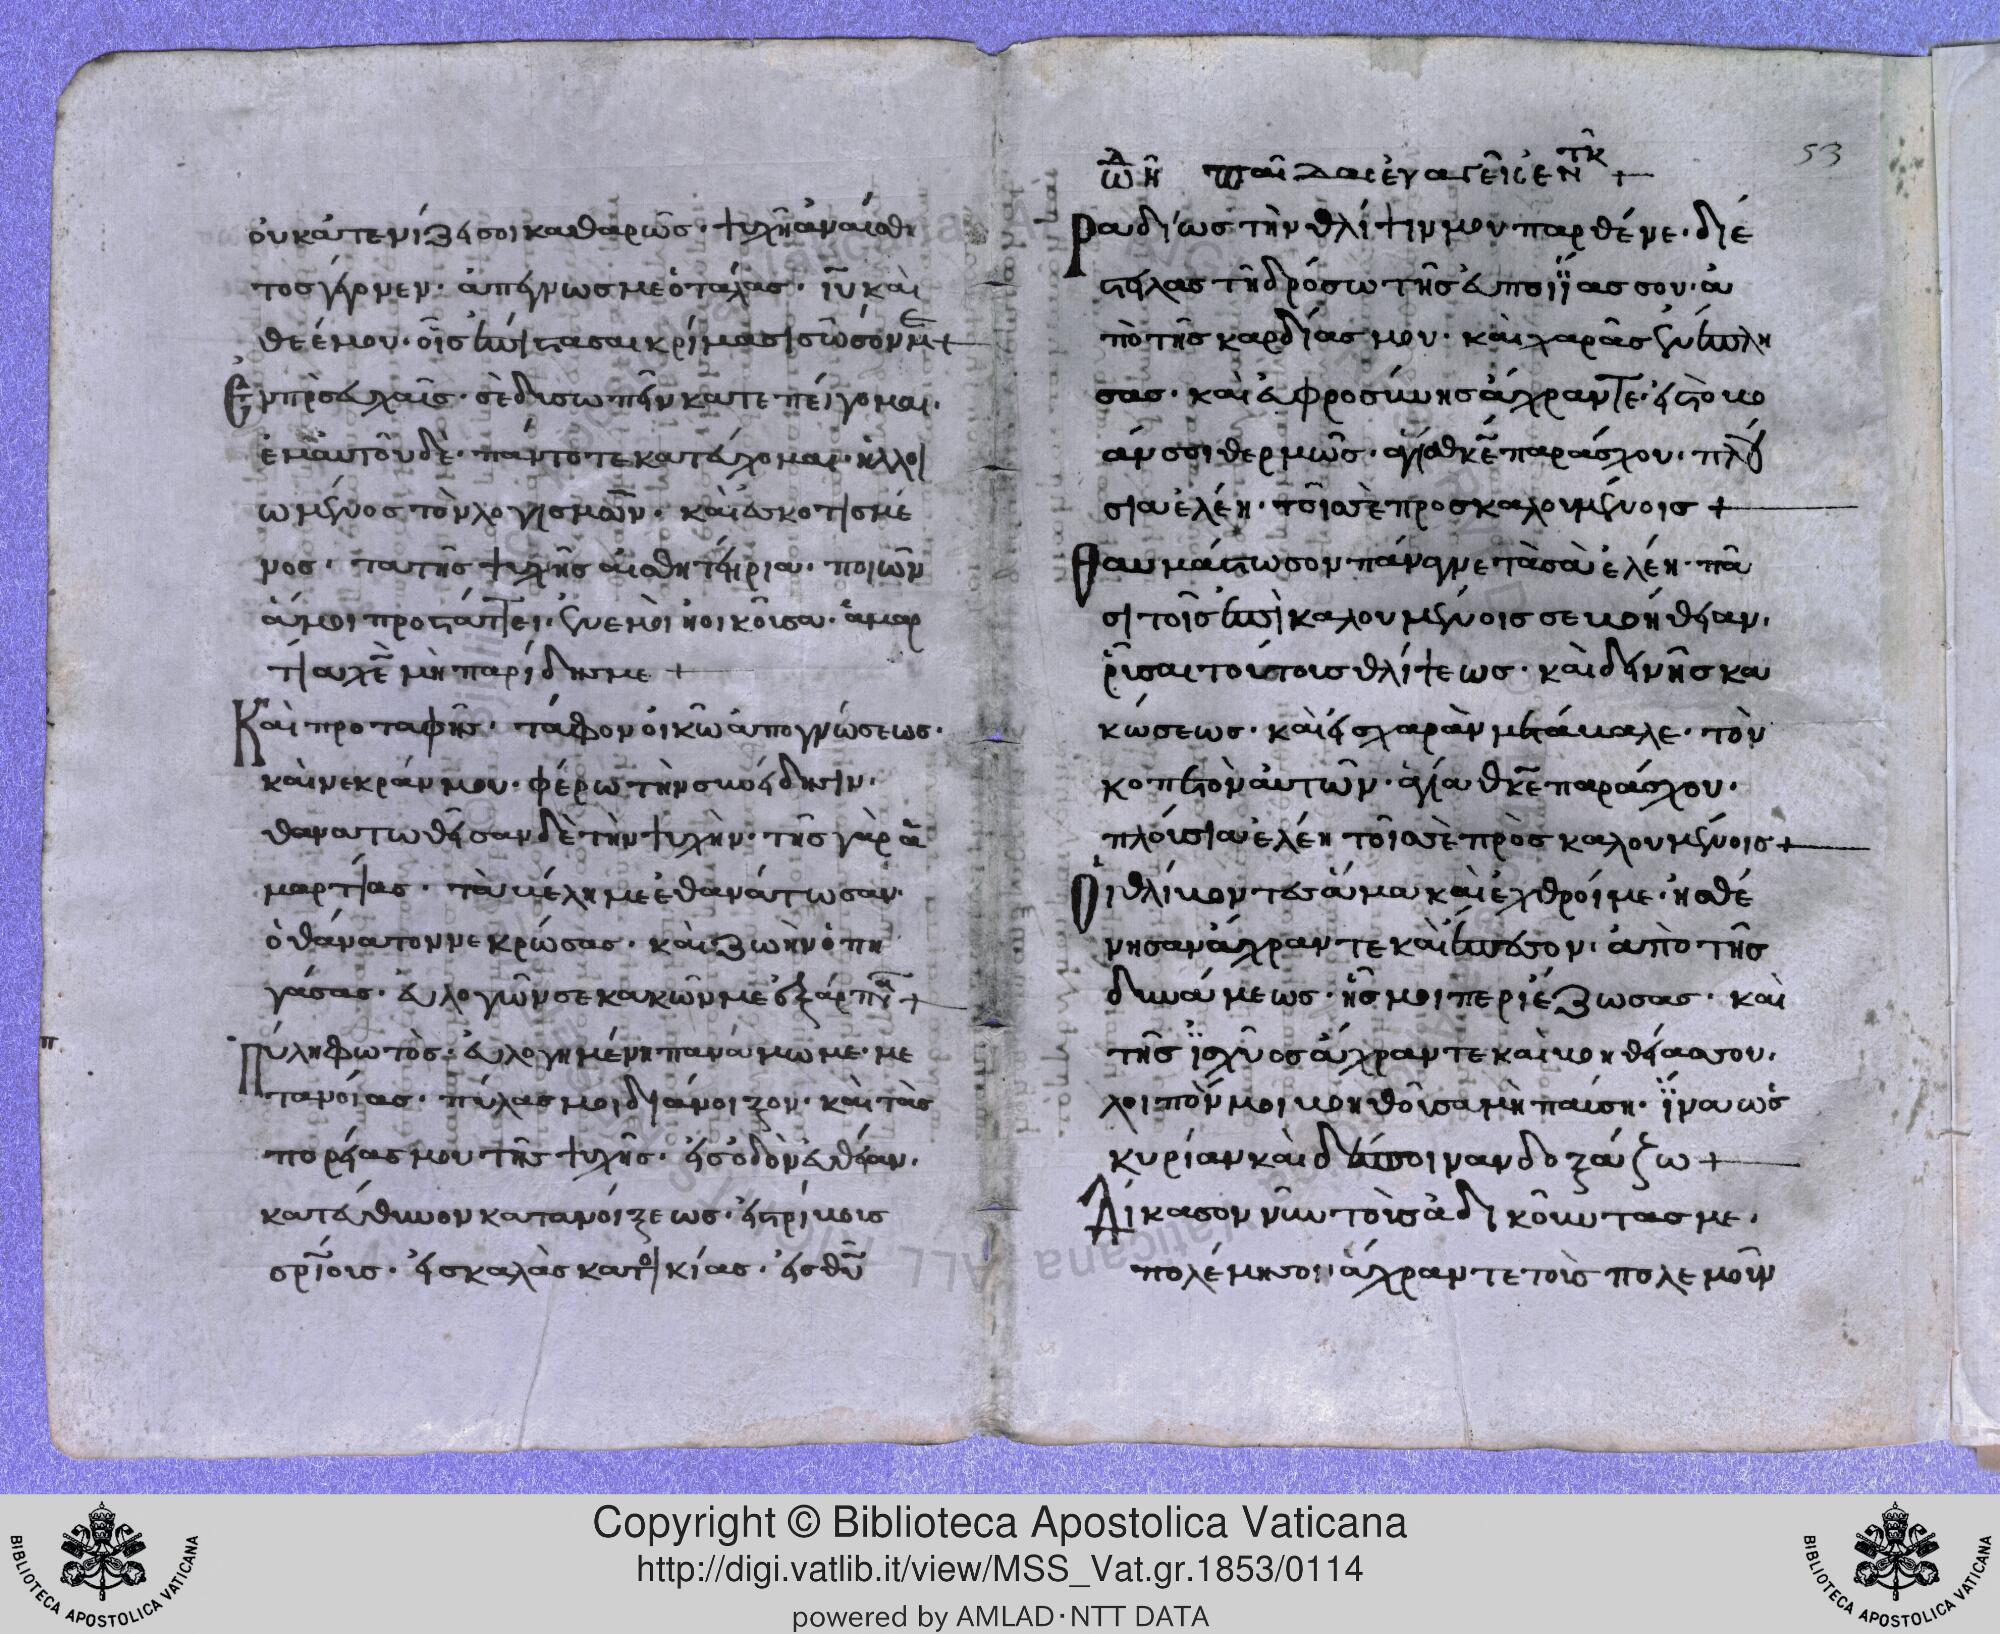 οὐκ ἀτενίζει σοι καθαρῶς· ψυχὴ ἀναίσθη
τος γέρνεν· ἀπεγνωσμε ὁ τάλας· ἰῦ καὶ
θεέ μου· οἷς ἐπίστασαι κρίμασι σῶσόν με +
Ἐν προσευχαῖς· σὲ δυσωπεῖν κατεπείγομαι·
ἐμαυτὸν δὲ· πάντοτε κατεύχομαι· ἠλλοι
ωμένος τὸν λογισμὸν· καὶ ἐσκοτισμέ
νος· τα τῆς ψυχῆς αἰσθητήρια· ποιῶν
ἁ μοι προστάττει· ἐν ἐμοὶ ἡ οἰκοῦσα· ἁμαρ
τία χε μὴ παρίδης με +
Καὶ πρὸ ταφῆς· τάφον οἰκῶ ἀπογνώσεως·
καὶ νεκράν μου· φέρω τὴν συνείδησιν·
θανατωθεῖσαν δὲ τὴν ψυχὴν· τῆς γὰρ ἁ
μαρτίας· τὰ μέλη με ἐθανάτωσαν·
ὁ θάνατον νεκρώσας· καὶ ζωὴν ὁ πη
γάσας· εὐλογῶν σε κακῶν με ἐξάρπα +
π
Πύλη φωτὸς· εὐλογημένη πανάμωμε· με
τανοίας· πύλας μοι διάνοιξον· καὶ τὰς
πορείας μου τῆς ψυχῆς· εἰς ὁδὸν εὐθεῖαν·
κατεύθυνον κατανοίξεως· εἰς τρίβους
σρίοις· εἰς καλὰς κατοικίας· εἰς θυ
53
ὠδὴ
Ραδίως τὴν θλίψιν μου παρθένε· διέ
στειλας τῆ δρόσω τῆς εὐποιΐας σου· ἀ
πὸ τῆς καρδίας μου· καὶ χαρᾶς ἐνέπλη
σας· καὶ εὐφροσύνης ἄχραντε· εἰς τὸ βο
άν σοι θερμῶς· ἁγία θκε παράσχου· πλού
σια ἐλέη· τοῖς σὲ προσκαλουμένοις +
Θαυμάστωσον πάναγνε τὰ σὰ ἐλέη· πᾶ
σι τοῖς ἐπικαλουμένοις σε βοήθειαν·
ῥῦσαι τούτους θλίψεως· καὶ δεινῆς κα
κώσεως· καὶ εἰς χαρὰν μετάβαλε· τὸν
κοπετὸν αὐτῶν· ἁγία θκε παράσχου·
πλούσια ἐλέη τοῖς σὲ προσκαλουμένοις +
Οἱ θλίβοντες ἅμα καὶ ἐχθροί με· ἠσθέ
νησαν ἄχραντε καὶ ἔπεσον· ἀπὸ τῆς
δυνάμεως· ἧς μοι περιέζωσας· καὶ
τῆς ἰσχύος ἄχραντε καὶ βοήθειά σου·
λοιπὸν μοι βοηθοῦσα μὴ παύση· ἵνα ὡς
κυρίαν καὶ δέσποιναν δοξάζω +
Δίκασον νῦν τοὺς ἀδικοῦντας με·
πολέμησον ἄχραντε τοὺς πολεμοῦν
Copyright © Biblioteca Apostolica Vaticana
http://digi.vatlib.it/view/MSS_Vat.gr.1853/0114
powered by AMLAD·NTT DATA
BIBLIOTECA APOSTOLICA VATICANA
BIBLIOTECA APOSTOLICA VATICANA